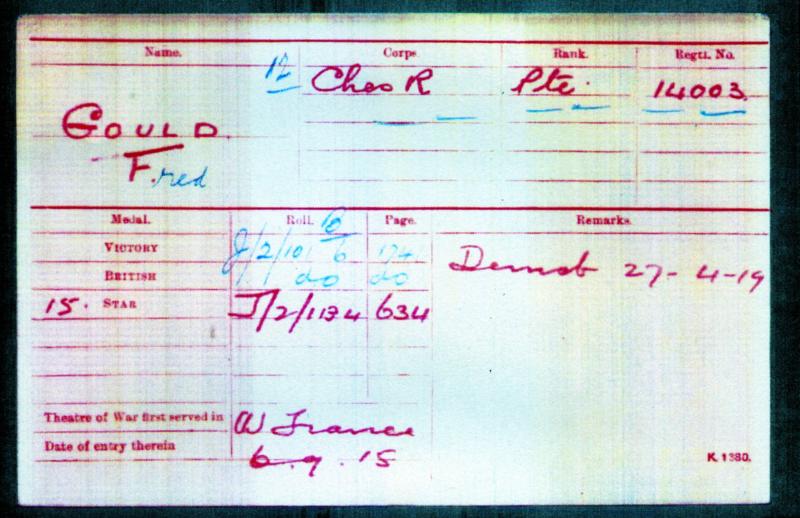 Name. Corps. Rank. Regtl. No.
12 Ches R Pte. 14003.
GOULD.
F.red
Medal. Roll. Page. Remarks.
VICTORY J/2/101 B 6 174.
BRITISH do do Demob 27-4-19
15. STAR J/2/1134 634
Theatre of War first served in (1) France
Date of entry therein 6.9.15
K. 1380.